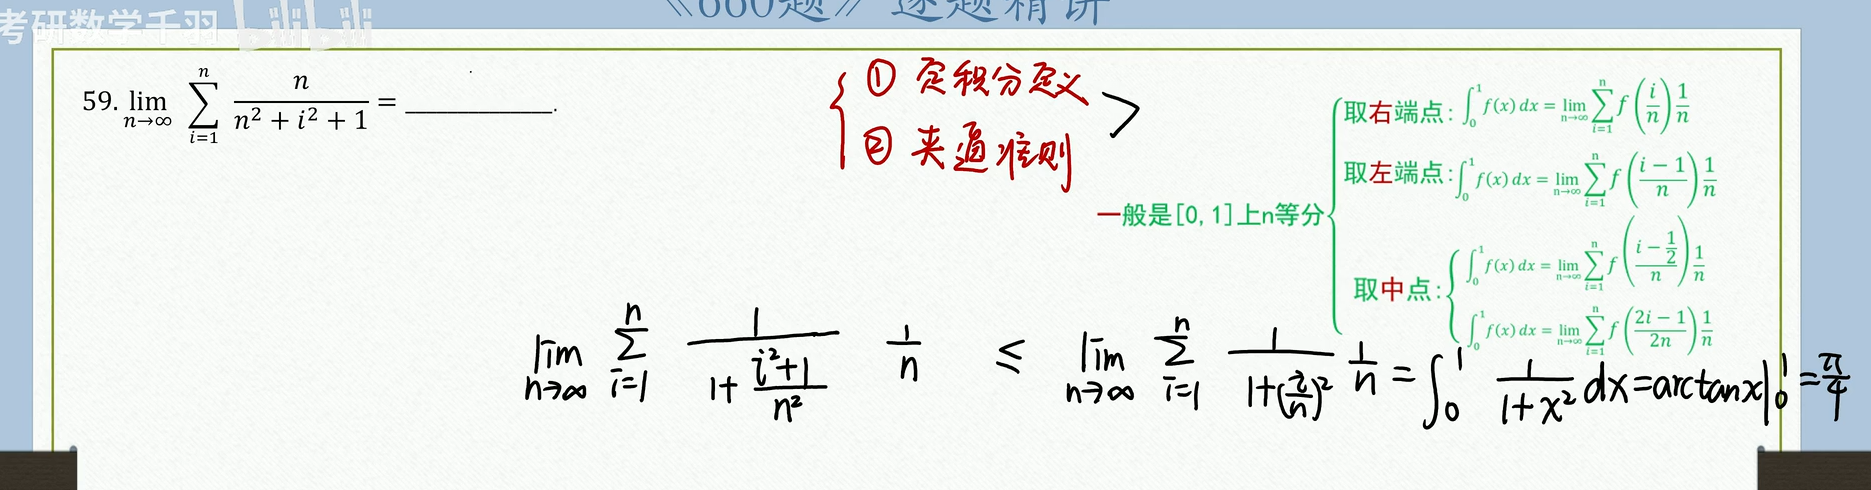 《660题》逐题精讲
考研数学千羽 bilibili
59. lim n→∞ ∑ i=1 n n/(n² + i² + 1) = ________.
① 定积分定义
② 夹逼准则
>
一般是[0,1]上n等分
取右端点: ∫₀¹ f(x) dx = lim n→∞ ∑ i=1 n f(i/n) 1/n
取左端点: ∫₀¹ f(x) dx = lim n→∞ ∑ i=1 n f((i − 1)/n) 1/n
取中点: ∫₀¹ f(x) dx = lim n→∞ ∑ i=1 n f((i − 1/2)/n) 1/n
∫₀¹ f(x) dx = lim n→∞ ∑ i=1 n f((2i − 1)/2n) 1/n
lim n→∞ ∑ i=1 n 1/(1 + (i²+1)/n²) 1/n ≤ lim n→∞ ∑ i=1 n 1/(1+(i/n)²) 1/n = ∫₀¹ 1/(1+x²) dx = arctanx|₀¹ = π/4